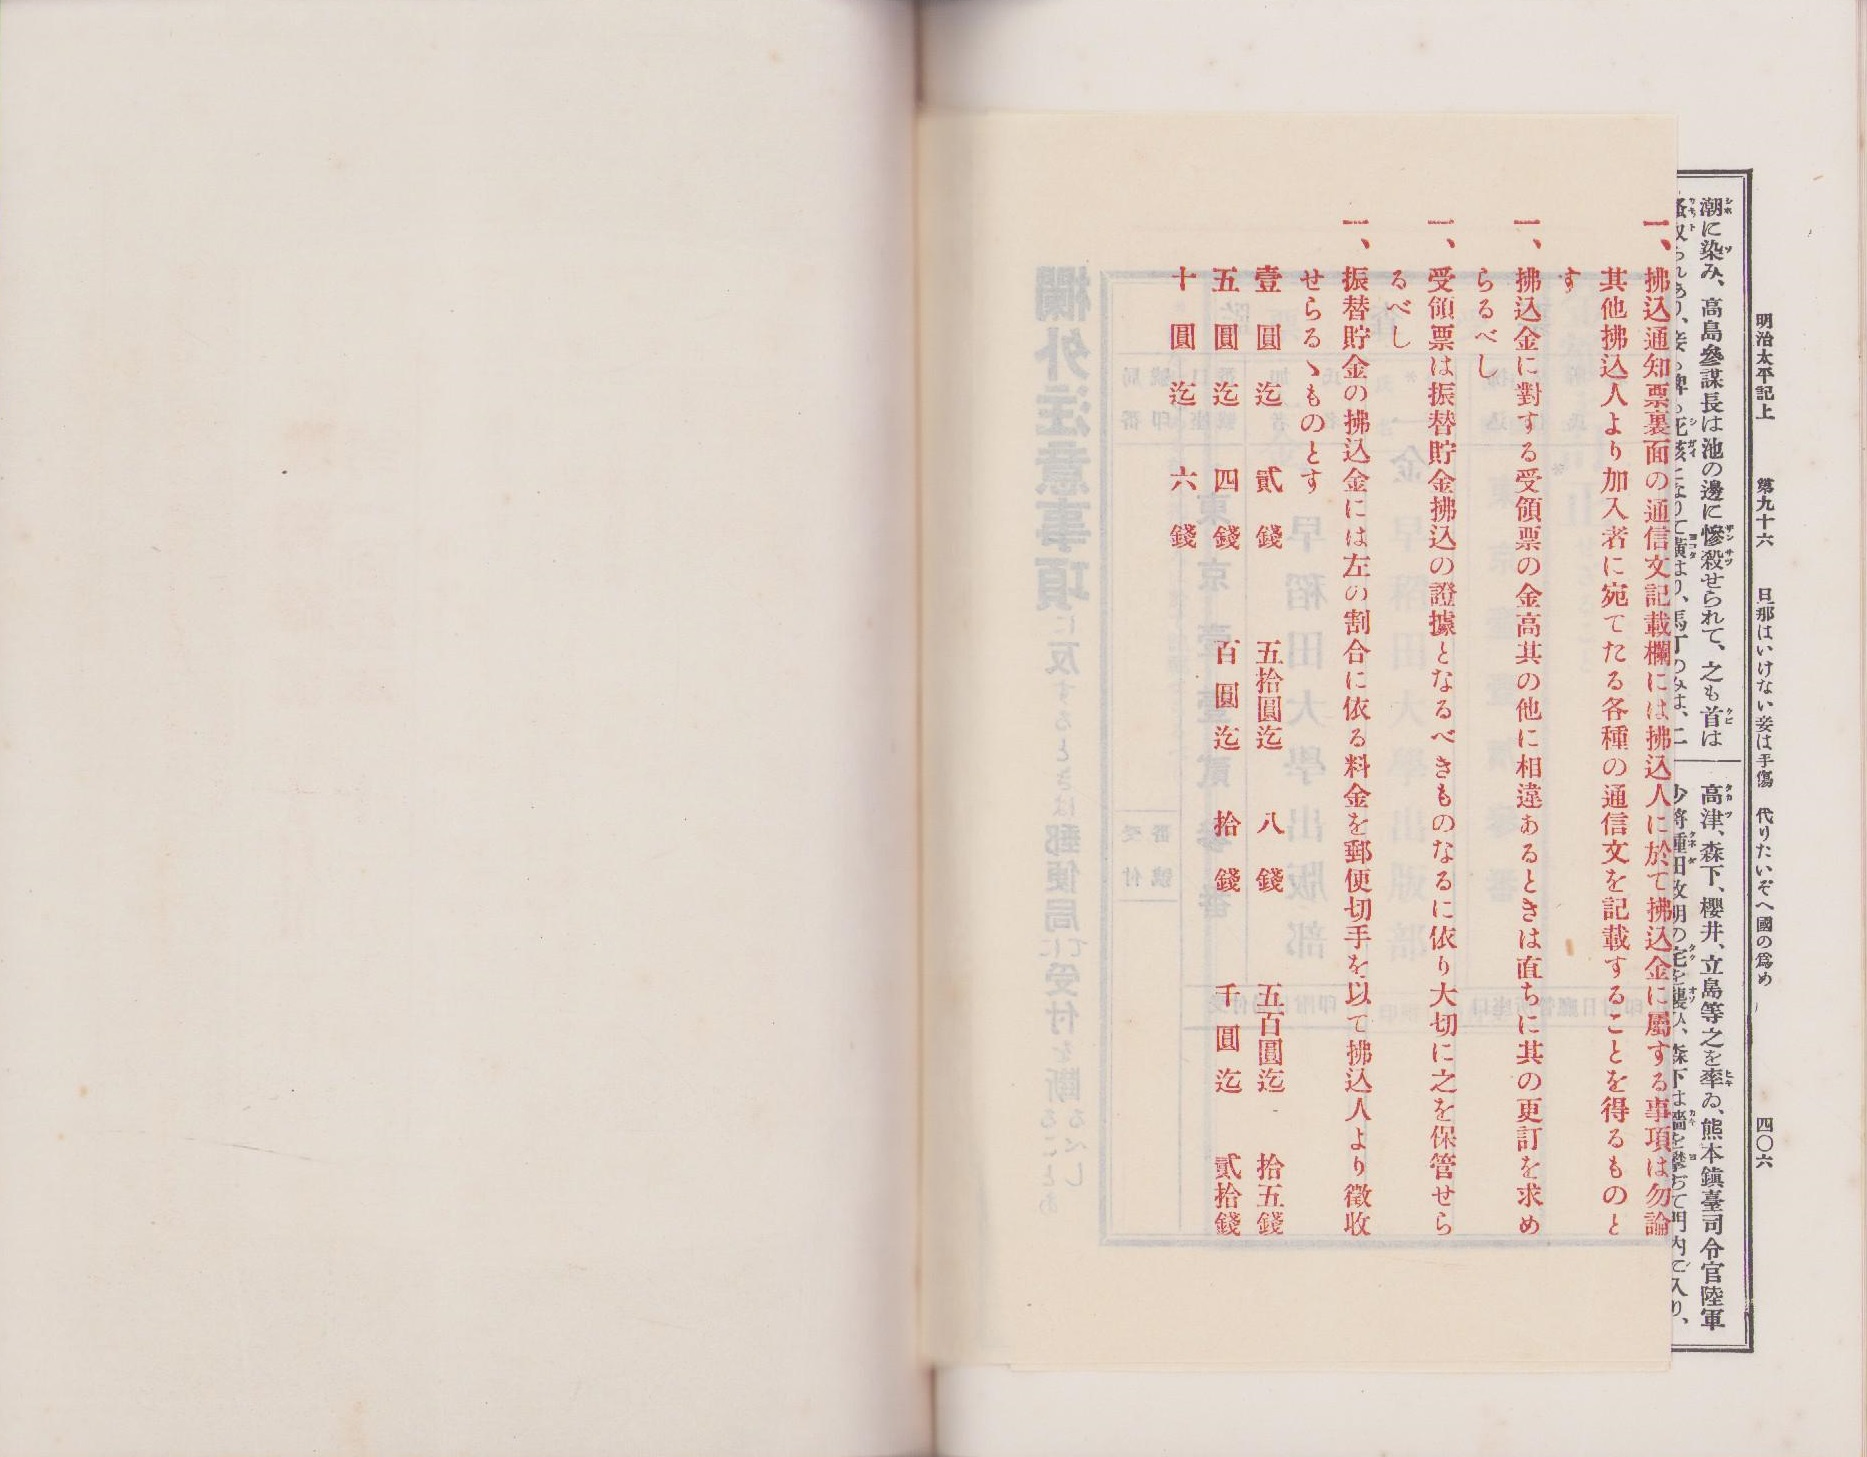 明治太平記上　第九十六　旦那はいけない妾は手傷　代りたいぞへ國の爲め　四〇六
潮に染み、高島參謀長は池の邊に慘殺せられて、之も首は
高津、森下、櫻井、立島等之を率ゐ、熊本鎭臺司令官陸軍
一、拂込通知票裏面の通信文記載欄には拂込人に於て拂込金に屬する事項は勿論
其他拂込人より加入者に宛てたる各種の通信文を記載することを得るものと
す
一、拂込金に對する受領票の金高其の他に相違あるときは直ちに其の更訂を求め
らるべし
一、受領票は振替貯金拂込の證據となるべきものなるに依り大切に之を保管せら
るべし
一、振替貯金の拂込金には左の割合に依る料金を郵便切手を以て拂込人より徵收
せらるゝものとす
壹圓迄　貳錢　五拾圓迄　八錢　五百圓迄　拾五錢
五圓迄　四錢　百圓迄　拾錢　千圓迄　貳拾錢
十圓迄　六錢
欄外注意事項に反するときは郵便局にて受付を斷
るべし
東京壹貳
早稻田大學出版部